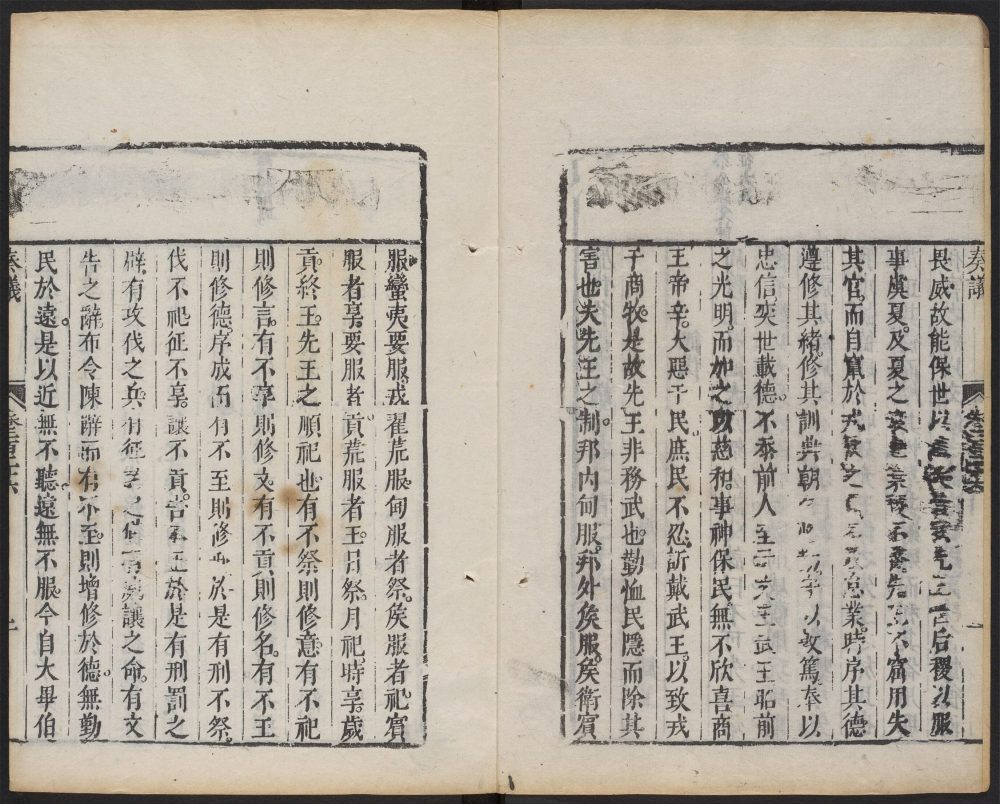 奏議
畏威故能保世以滋大昔我先王世后稷以服
事虞夏及夏之衰也棄稷不務先王不窋用失
其官而自竄於戎翟之間不敢怠業時序其德
遵修其緒修其訓典朝夕恪勤守以敦篤奉以
忠信奕世載德不忝前人至于文王武王昭前
之光明而加之以慈和事神保民無不欣喜商
王帝辛大惡于民庶民不忍訢戴武王以致戎
于商牧是故先王非務武也勤恤民隱而除其
害也夫先王之制邦內甸服邦外侯服侯衛賓
服蠻夷要服戎翟荒服甸服者祭侯服者祀賓
服者享要服者貢荒服者王日祭月祀時享歲
貢終王先王之順祀也有不祭則修意有不祀
則修言有不享則修文有不貢則修名有不王
則修德序成而有不至則修刑於是有刑不祭
伐不祀征不享讓不貢告不王於是有刑罰之
辟有攻伐之兵有征討之備有威讓之命有文
告之辭布令陳辭而有不至則增修於德無勤
民於遠是以近無不聽遠無不服今自大畢伯
奏議